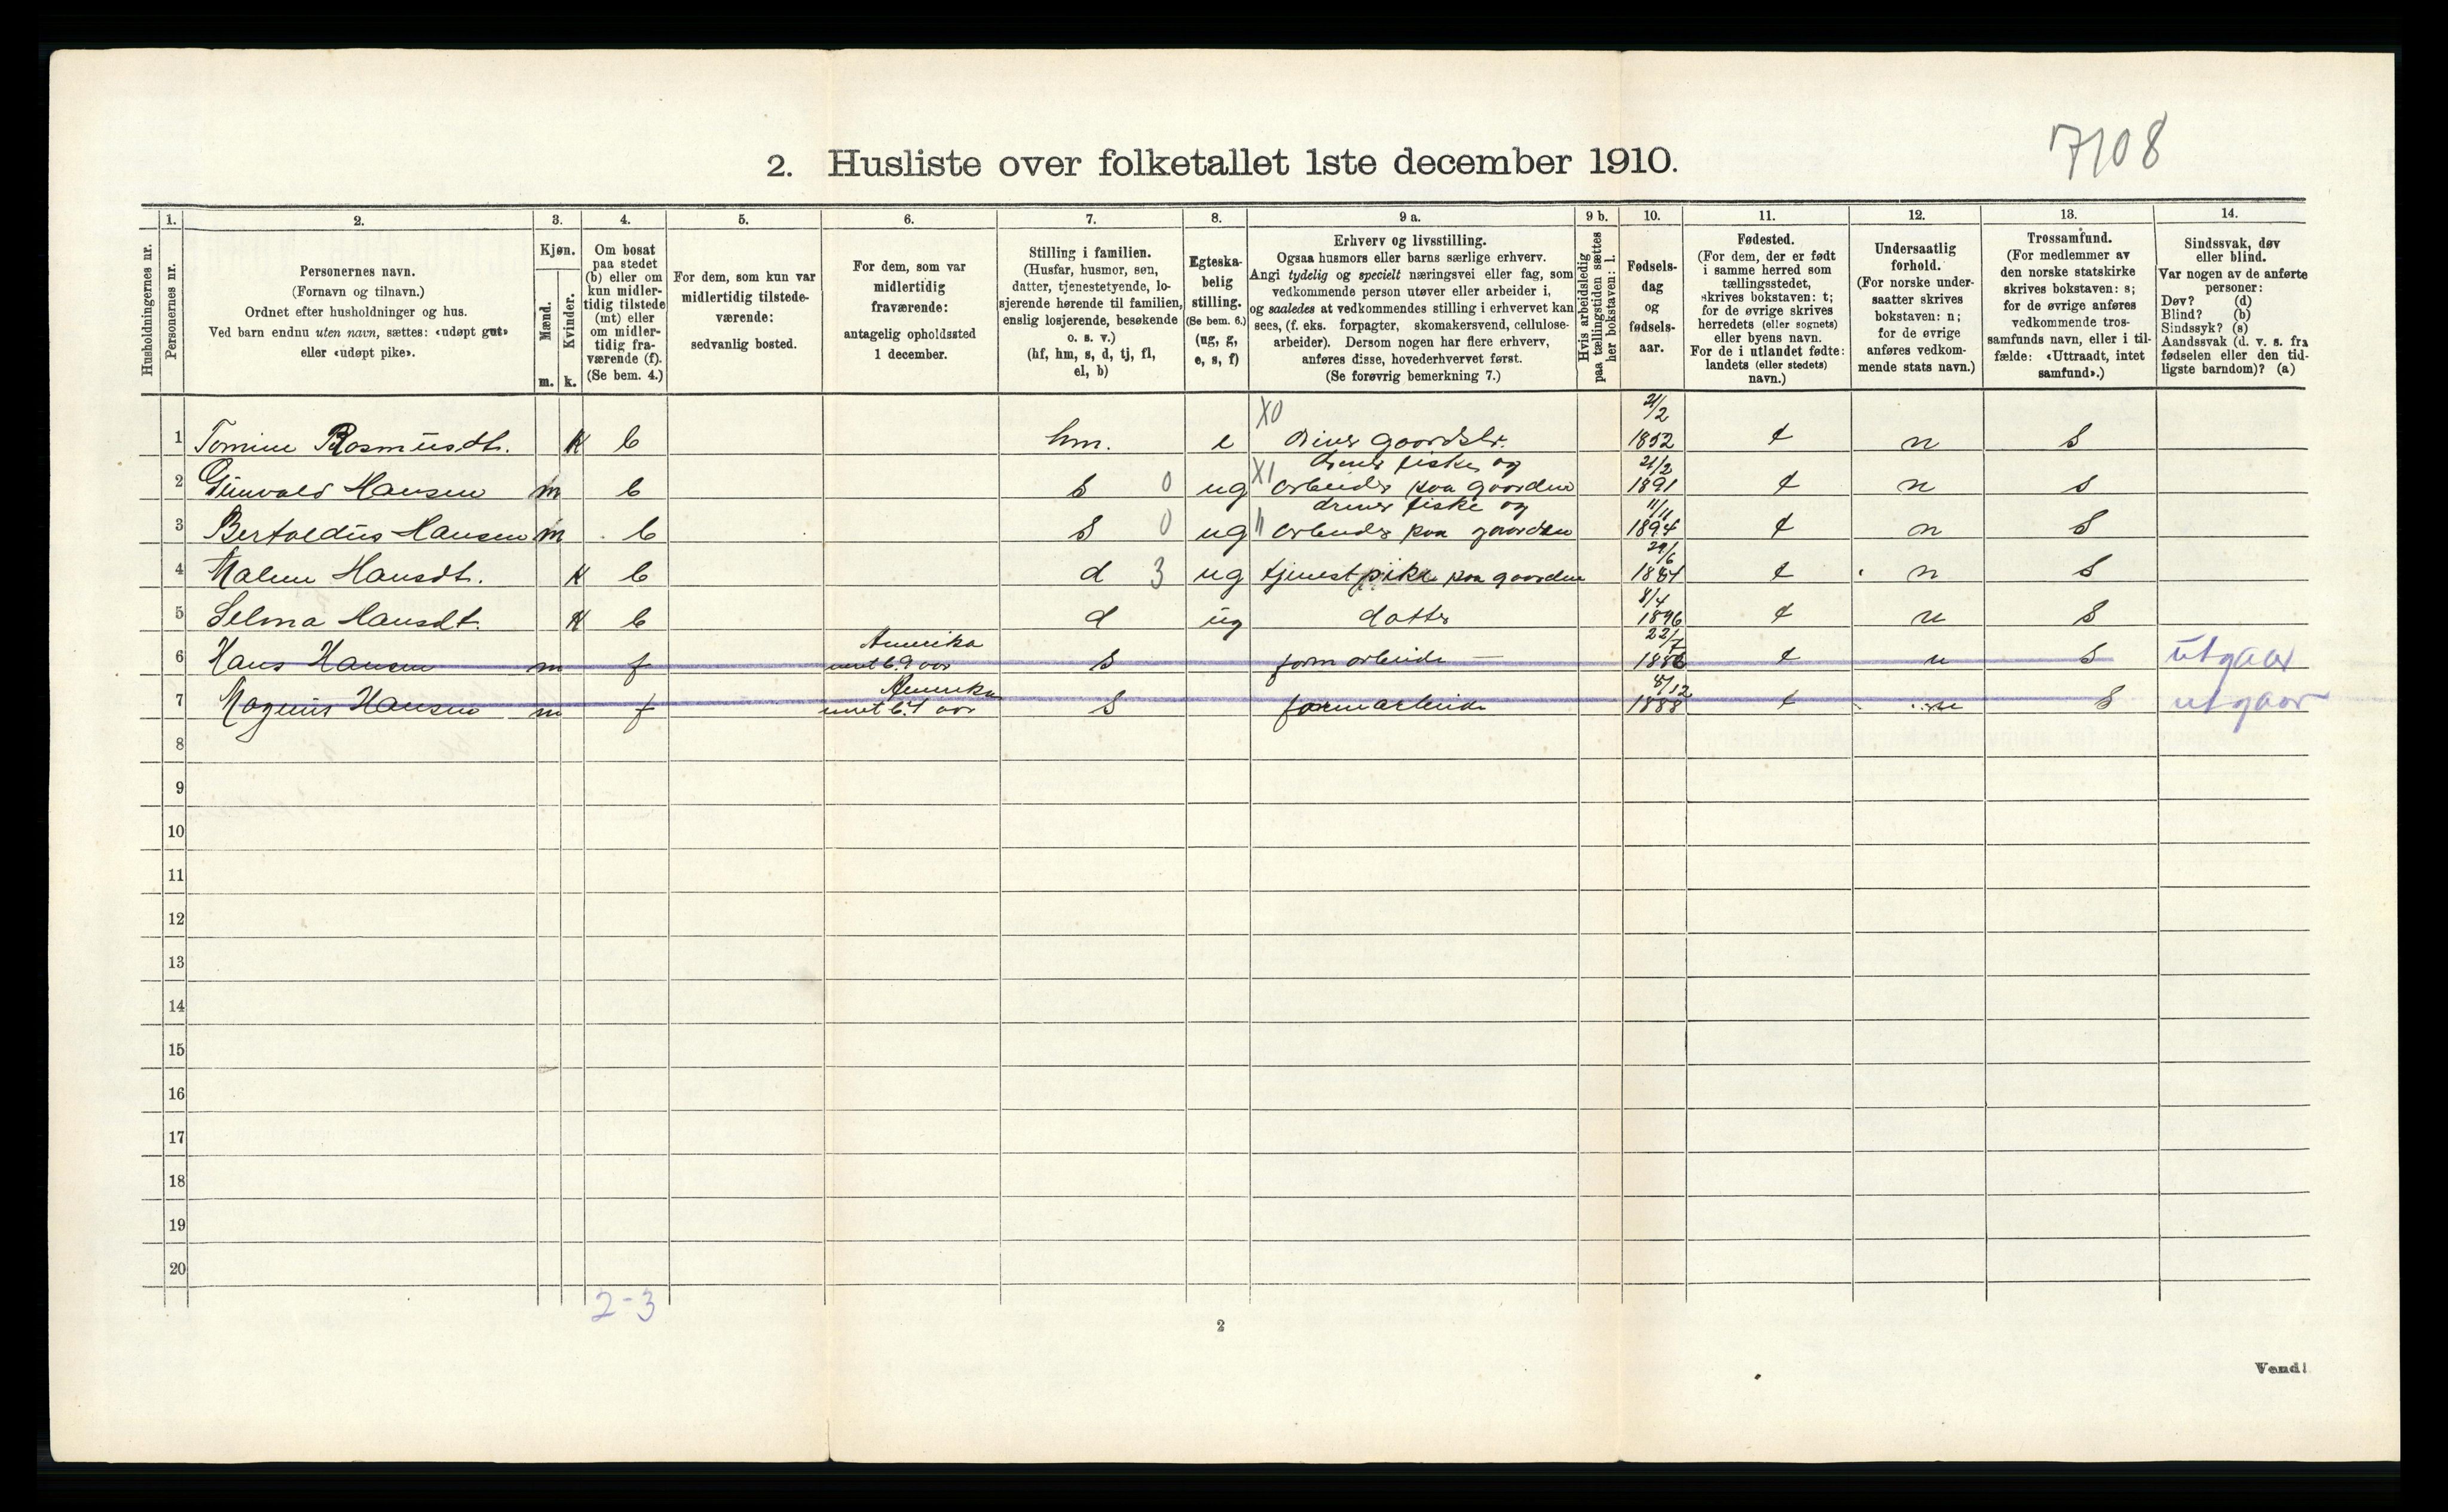 7108
2. Husliste over folketallet 1ste december 1910.
Husholdningernes nr.
1.
Personernes nr.
2.
Personernes navn.
(Fornavn og tilnavn.)
Ordnet efter husholdninger og hus.
Ved barn endnu uten navn, sættes: «udøpt gut»
eller «udøpt pike».
3.
Kjøn.
Mænd.
m.
Kvinder.
k.
4.
Om bosat
paa stedet
(b) eller om
kun midler-
tidig tilstede
(mt) eller
om midler-
tidig fra-
værende (f).
(Se bem. 4.)
5.
For dem, som kun var
midlertidig tilstede-
værende:
sedvanlig bosted.
6.
For dem, som var
midlertidig
fraværende:
antagelig opholdssted
1 december.
7.
Stilling i familien.
(Husfar, husmor, søn,
datter, tjenestetyende, lo-
sjerende hørende til familien,
enslig losjerende, besøkende
o. s. v.)
(hf, hm, s, d, tj, fl,
el, b)
8.
Egteska-
belig
stilling.
(Se bem. 6.)
(ug, g,
e, s, f)
9 a.
Erhverv og livsstilling.
Ogsaa husmors eller barns særlige erhverv.
Angi tydelig og specielt næringsvei eller fag, som
vedkommende person utøver eller arbeider i,
og saaledes at vedkommendes stilling i erhvervet kan
sees, (f. eks. forpagter, skomakersvend, cellulose-
arbeider). Dersom nogen har flere erhverv,
anføres disse, hovederhvervet først.
(Se forøvrig bemerkning 7.)
9 b.
Hvis arbeidsledig
paa tællingstiden sættes
her bokstaven: l.
10.
Fødsels-
dag
og
fødsels-
aar.
11.
Fødested.
(For dem, der er født
i samme herred som
tællingsstedet,
skrives bokstaven: t;
for de øvrige skrives
herredets (eller sognets)
eller byens navn.
For de i utlandet fødte:
landets (eller stedets)
navn.)
12.
Undersaatlig
forhold.
(For norske under-
saatter skrives
bokstaven: n;
for de øvrige
anføres vedkom-
mende stats navn.)
13.
Trossamfund.
(For medlemmer av
den norske statskirke
skrives bokstaven: s;
for de øvrige anføres
vedkommende tros-
samfunds navn, eller i til-
fælde: «Uttraadt, intet
samfund».)
14.
Sindssvak, døv
eller blind.
Var nogen av de anførte
personer:
Døv? (d)
Blind? (b)
Sindssyk? (s)
Aandssvak (d. v. s. fra
fødselen eller den tid-
ligste barndom)? (a)
1 Tomine Rasmusdt. k b hm. e X0 driver gaardsbr. 21/2 1852 t n s
2 Gunvald Hansen m b s 0 ug X1 driver fiske og arbeider paa gaarden 21/2 1891 t n s
3 Bertoldus Hansen m b s 0 ug " driver fiske og arbeider paa gaarden 11/11 1894 t n s
4 Malene Hansdt. k b d 3 ug tjenestpike paa gaarden 29/6 1884 t n s
5 Selma Hansdt. k b d ug datter 8/4 1896 t n s
6 Hans Hansen m f Amerika s farmarbeide 22/7 1886 t n s utgaar
7 Magnus Hansen m f Amerika s farmarbeide 1888 t n s utgaar
8
9
10
11
12
13
14
15
16
17
18
19
20
2-3
2
Vend!